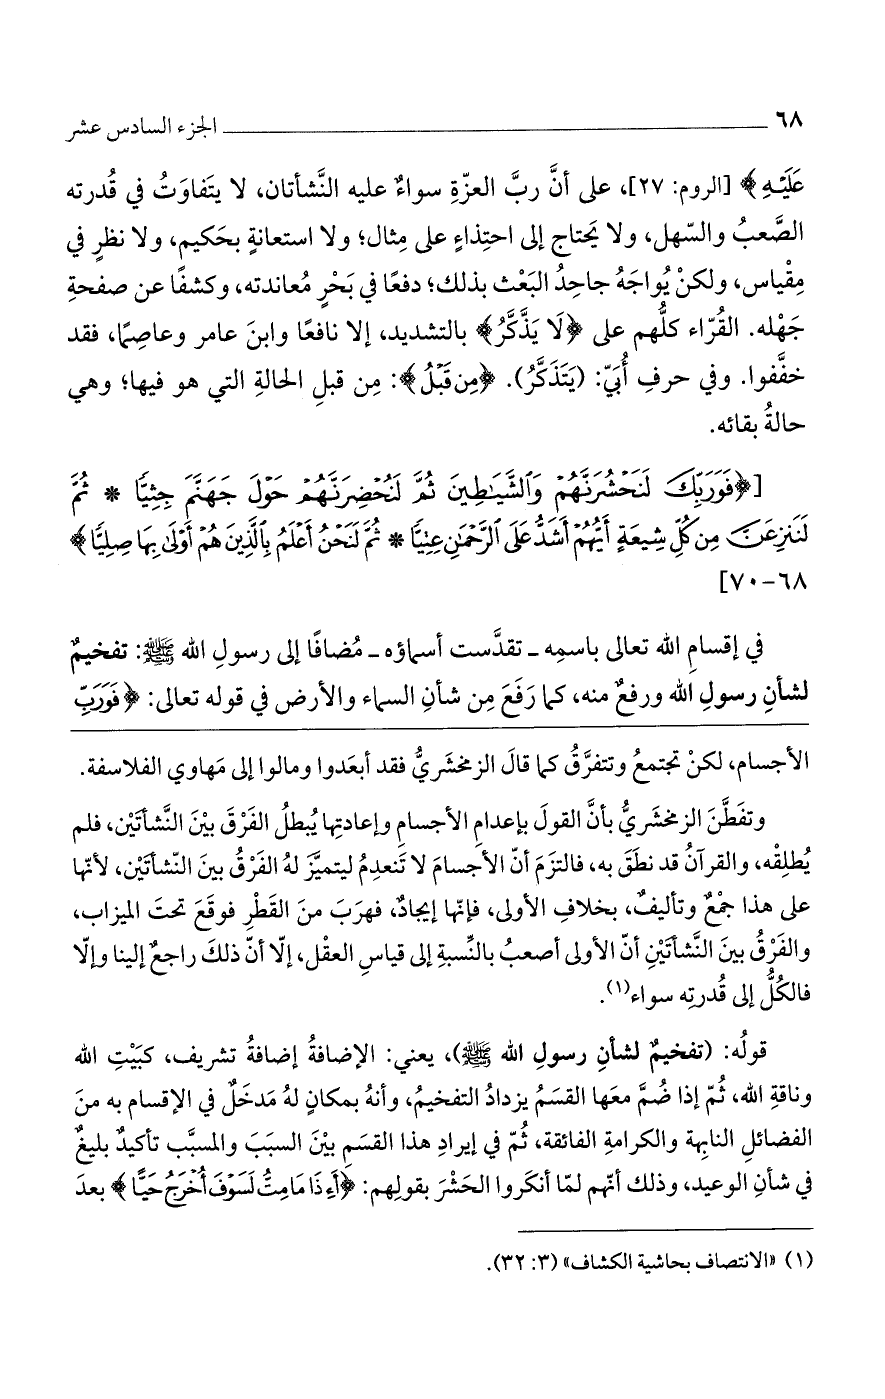 ٦٨ الجزء السادس عشر
عَلَيْهِ﴾ [الروم: ٢٧]، على أنَّ ربَّ العزّةِ سواءٌ عليه النَّشأتان، لا يتَفاوَتُ في قُدرته
الصَّعبُ والسّهل، ولا يَحتاج إلى احتِذاءٍ على مِثال؛ ولا استعانةٍ بحَكيم، ولا نظرٍ في
مِقْياس، ولكنْ يُواجَهُ جاحِدُ البَعْث بذلك؛ دفعًا في بَحْرِ مُعاندته، وكشفًا عن صفحةِ
جَهْله. القُرّاء كلُّهم على ﴿لَا يَذَّكَّرُ﴾ بالتشديد، إلا نافعًا وابنَ عامر وعاصِمًا، فقد
خفَّفوا. وفي حرفِ أُبَيّ: (يَتَذَكَّرُ). ﴿مِن قَبْلُ﴾: مِن قبلِ الحالةِ التي هو فيها؛ وهي
حالةُ بقائه.
[﴿فَوَرَبِّكَ لَنَحْشُرَنَّهُمْ وَٱلشَّيَٰطِينَ ثُمَّ لَنُحْضِرَنَّهُمْ حَوْلَ جَهَنَّمَ جِثِيًّا * ثُمَّ
لَنَنزِعَنَّ مِن كُلِّ شِيعَةٍ أَيُّهُمْ أَشَدُّ عَلَى ٱلرَّحْمَٰنِ عِتِيًّا * ثُمَّ لَنَحْنُ أَعْلَمُ بِٱلَّذِينَ هُمْ أَوْلَىٰ بِهَا صِلِيًّا﴾
٦٨-٧٠]
في إقسامِ الله تعالى باسمِه ـ تقدَّست أسماؤه ـ مُضافًا إلى رسولِ الله ﷺ: تفخيمٌ
لشأنِ رسولِ الله ورفعٌ منه، كما رَفَعَ مِن شأنِ السماء والأرض في قوله تعالى: ﴿فَوَرَبِّ
الأجسام، لكنْ تجتمعُ وتتفرَّقُ كما قالَ الزمخشَريُّ فقد أبعَدوا ومالوا إلى مَهاوي الفلاسفة.
وتفَطَّنَ الزمخشَريُّ بأنَّ القولَ بإعدامِ الأجسامِ وإعادتِها يُبطلُ الفَرْقَ بيْنَ النَّشأتَيْن، فلم
يُطلِقْه، والقرآنُ قد نطَقَ به، فالتزَمَ أنّ الأجسامَ لا تَنعدِمُ ليتميَّزَ لهُ الفَرْقُ بينَ النّشأتَيْن، لأنّها
على هذا جمْعٌ وتأليفٌ، بخلافِ الأولى، فإنّها إيجادٌ، فهرَبَ منَ القَطْرِ فوقَعَ تحتَ الميزاب،
والفَرْقُ بينَ النَّشأتَيْنِ أنّ الأولى أصعبُ بالنِّسبةِ إلى قياسِ العقْل، إلّا أنّ ذلكَ راجعٌ إلينا وإلّا
فالكُلُّ إلى قُدرتِه سواء(١).
قولُه: (تفخيمٌ لشأنِ رسولِ الله ﷺ)، يعني: الإضافةُ إضافةُ تشريف، كبَيْتِ الله
وناقةِ الله، ثُمّ إذا ضُمَّ معَها القسَمُ يزدادُ التفخيمُ، وأنهُ بمكانٍ لهُ مَدخَلٌ في الإقسام به منَ
الفضائلِ النابِهة والكرامةِ الفائقة، ثُمّ في إيرادِ هذا القسَمِ بيْنَ السبَبَ والمسبَّب تأكيدٌ بليغٌ
في شأنِ الوعيد، وذلك أنّهم لمّا أنكَروا الحَشْرَ بقولِهم: ﴿أَءِذَا مَا مِتُّ لَسَوْفَ أُخْرَجُ حَيًّا﴾ بعدَ
(١) «الانتصاف بحاشية الكشاف» (٣: ٣٢).